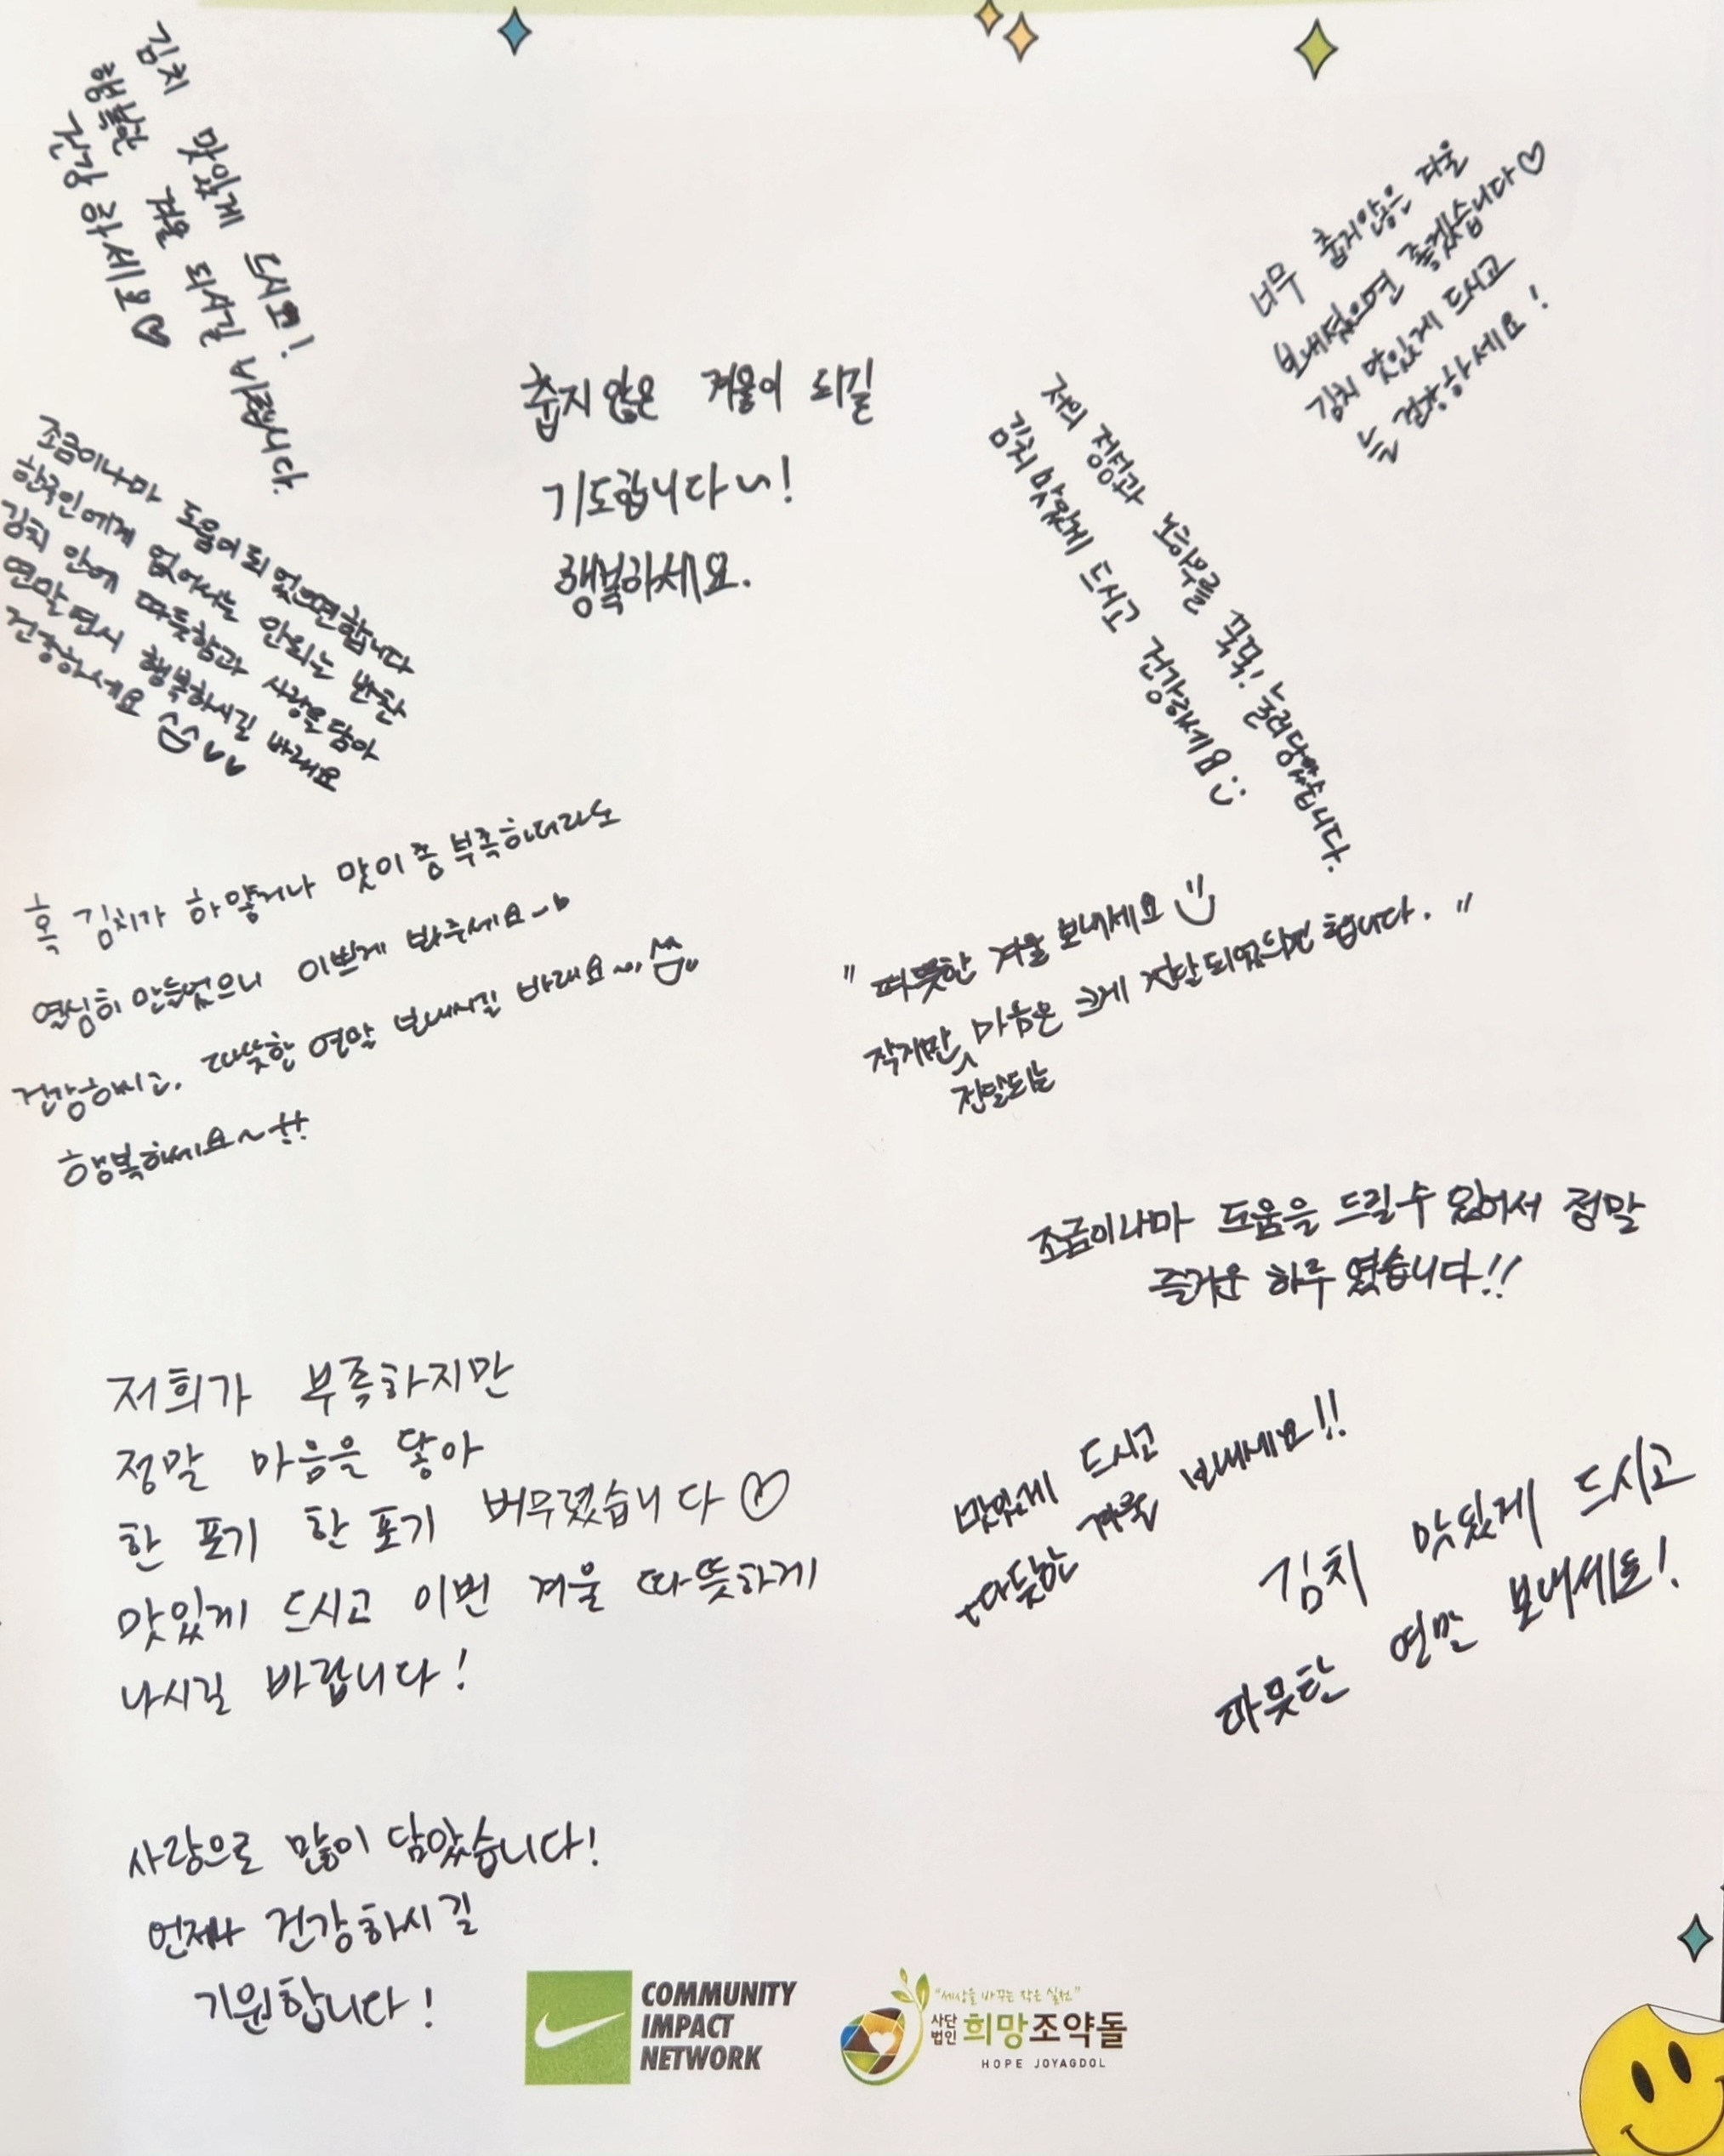 김치 맛있게 드시고!
행복한 겨울 되시길 바랍니다.
건강 하세요♡
너무 춥지않은 겨울
보내셨으면 좋겠습니다♡
김치 맛있게 드시고
늘 건강하세요!
춥지 않은 겨울이 되길
기도합니다~!
행복하세요.
저의 정성과 노하우를 꾹꾹! 눌러담았습니다.
김치 맛있게 드시고 건강하세요 :)
조금이나마 도움이 되었으면 합니다
한국인에게 없어서는 안되는 반찬
김치 안에 따듯함과 사랑을 담아
연말 면서 행복하시길 바래요
건강하세요
혹 김치가 하얗거나 맛이 좀 부족하더라도
열심히 만들었으니 이쁘게 봐주세요~♡
건강하시고, 따뜻한 연말 보내시길 바래요~
행복하세요~!!
"따뜻한 겨울 보내세요
작지만 전달되는 마음은 크게 전달되었으면 합니다."
조금이나마 도움을 드릴수 있어서 정말
즐거운 하루 였습니다!!
저희가 부족하지만
정말 마음을 닿아
한 포기 한 포기 버무렸습니다♡
맛있게 드시고 이번 겨울 따뜻하게
나시길 바랍니다!
맛있게 드시고
따듯한 겨울 보내세요!!
김치 맛있게 드시고
따뜻한 연말 보내세요!
사랑으로 많이 담았습니다!
언제나 건강하시길
기원합니다!
COMMUNITY
IMPACT
NETWORK
"세상을 바꾸는 작은 실천"
사단법인 희망조약돌
HOPE JOYAGDOL